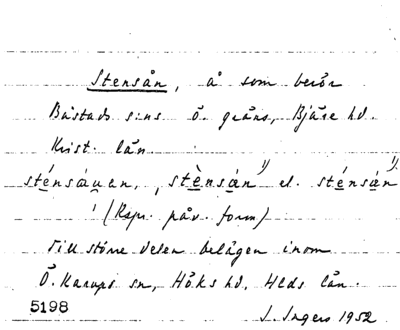 Stensån, å som berör
Båstads s:ns Ö. gräns, Bjäre hd.
Krist. län.
sténsáuan, stènsán¹⁾ el. sténsán¹⁾.
¹⁾ (Rspr. påv. form)
Till större delen belägen inom
Ö. Karups sn, Höks hd, Hlds län.
5198
I. Ingers 1952